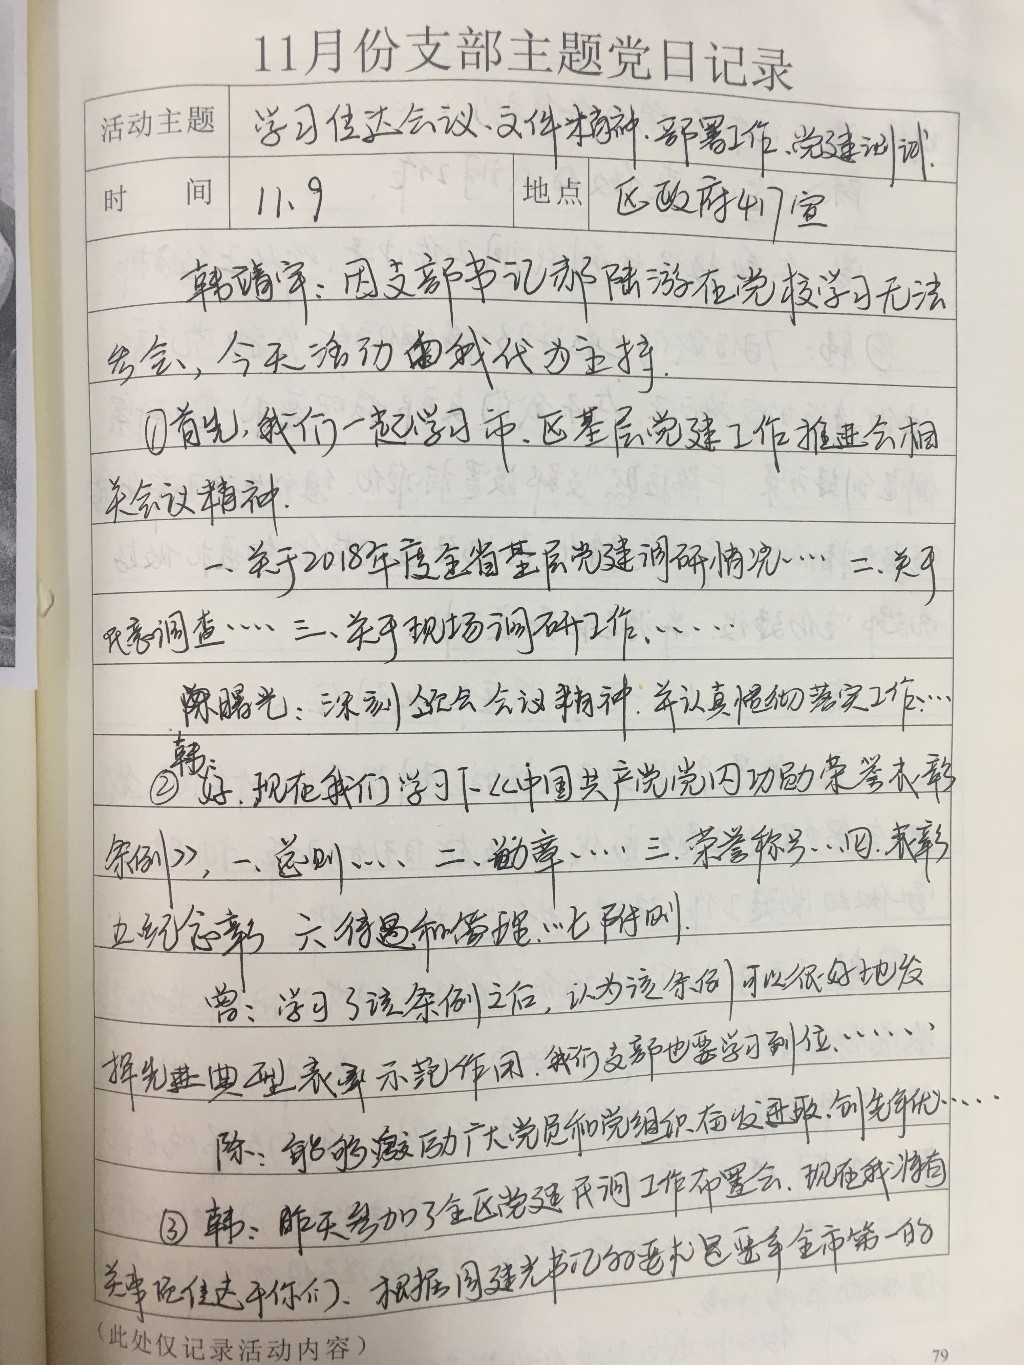 11月份支部主题党日记录
活动主题 学习传达会议、文件精神、部署工作、党建测试
时 间 11.9 地点 区政府417室
韩靖宇：因支部书记郝陆游在党校学习无法
参会，今天活动由我代为主持.
①首先，我们一起学习市、区基层党建工作推进会相
关会议精神.
一、关于2018年度全省基层党建调研情况…… 二、关于
民意调查…… 三、关于现场调研工作、……
陈曙光：深刻领会会议精神，并认真贯彻落实工作……
韩：
②好，现在我们学习下《中国共产党党内功勋荣誉表彰
条例》，一、总则…… 二、勋章…… 三、荣誉称号… 四、表彰
五纪念章 六待遇和管理…七附则.
曾：学习了该条例之后，认为该条例可以很好地发
挥先进典型表率示范作用，我们支部也要学习到位、……
陈：能够激励广大党员和党组织奋发进取、创先争优……
③韩：昨天参加了全区党建民调工作布置会，现在我将有
关事项传达于你们、根据周建光书记的要求是要争全市第一的
（此处仅记录活动内容）
79